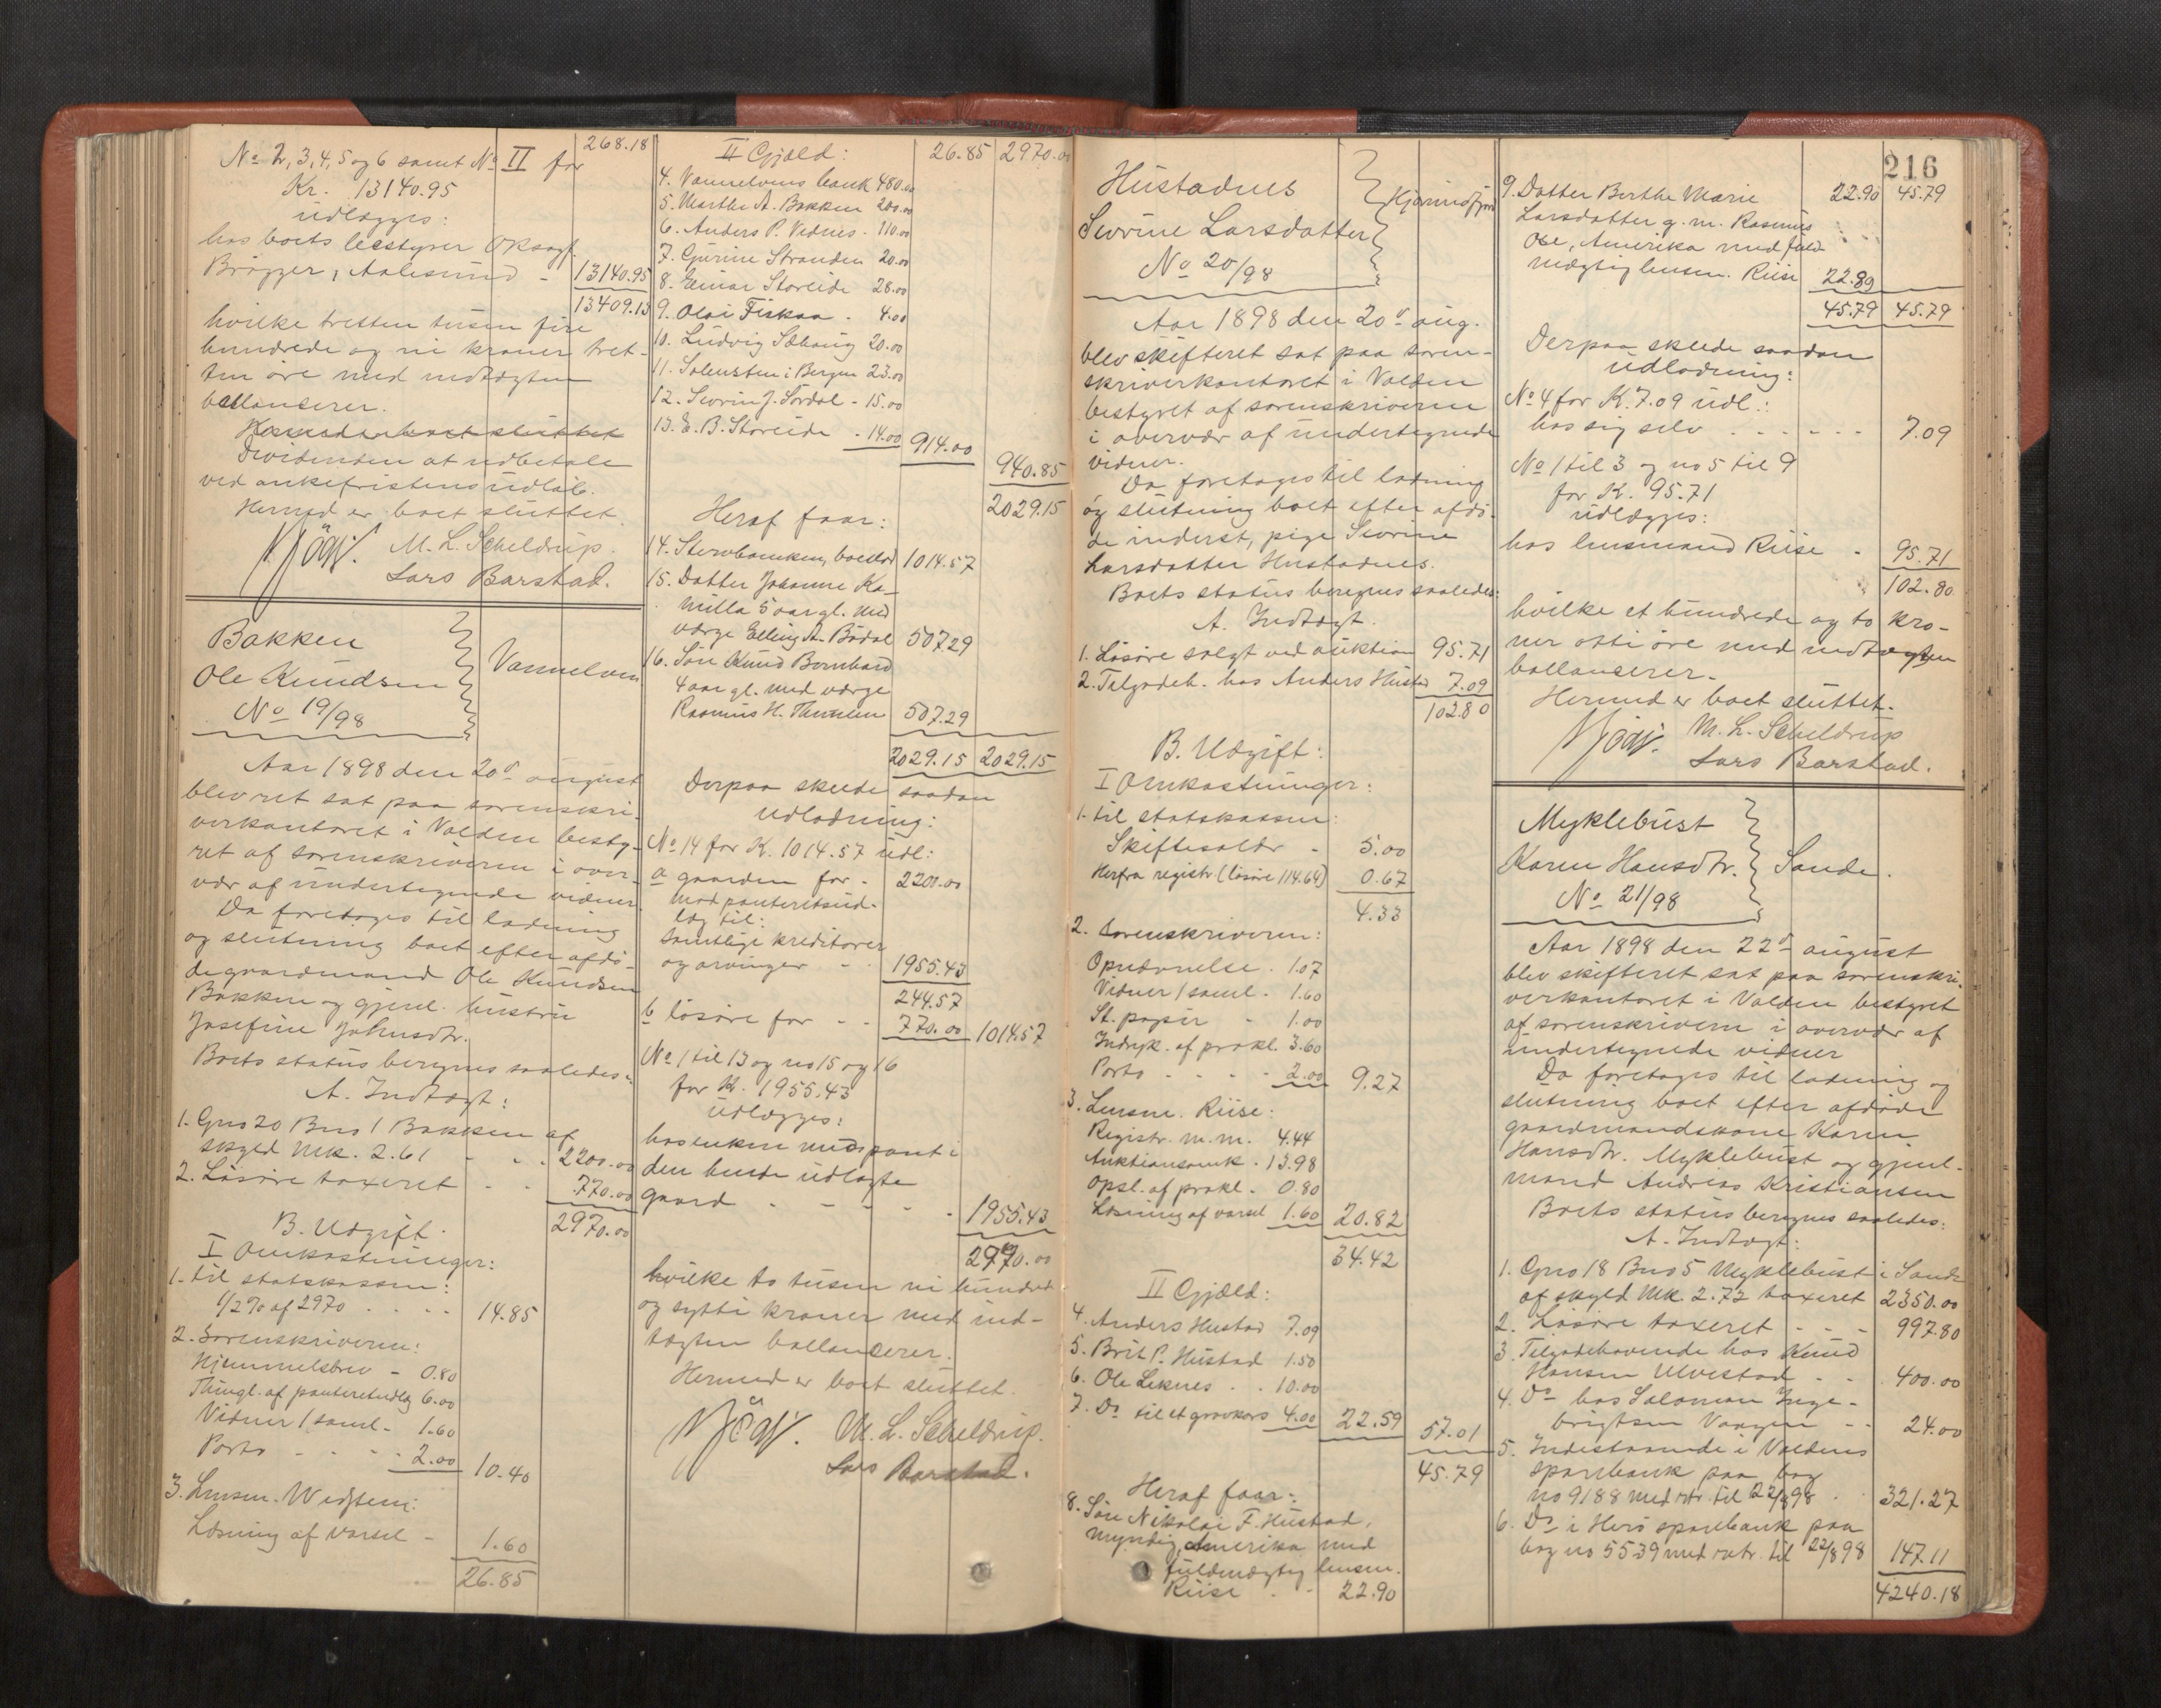 268.18
No 2, 3, 4, 5 og 6 samt No II for
Kr. 13140.95
udlægges:
hos boets bestyrer ORsagf.
Brögger, Aalesund - 13140.95
13409.13
hvilke tretten tusen fire
hundrede og ni kroner tret-
ten öre med indtægten
ballanserer.
Hermed er boet sluttet
Dividenden at udbetale
ved ankefristens udløb.
Hermed er boet sluttet.
M. L. Scheldrup.
Lars Barstad.
Bakken
Ole Knudsen
No 19/98
Vannelven
Aar 1898 den 20de august
blev ret sat paa sorenskri-
verkontoret i Volden besty-
ret af sorenskriveren i over-
vær af undertegnede vidner.
Da foretoges til lodning
og slutning boet efter afdö-
de gaardmand Ole Knudsen
Bakken og gjenl. hustru
Josefine Johnsdtr.
Boets status beregnes saaledes:
A. Indtægt:
1. Gno 20 Bno 1 Bakken af
skyld Mk. 2.61 - - - 2200.00
2. Lösöre taxeret - - 770.00
2970.00
B. Udgift.
I Omkostninger:
1. til statskassen:
1/2 % af 2970 . . . . 14.85
2. Sorenskriveren:
Hjemmelsbrev - 0.80
Thingl. af panteretudlæg 6.00
Vidner 1 saml. - 1.60
Porto - - - - 2.00 10.40
3. Lensm. Widsteen:
Læsning af varsel - 1.60
26.85
II Gjæld: 26.85 2970.00
4. Vannelvens bank 480.00
5. Marthe A. Bakken 200.00
6. Anders P. Vednes - 110.00
7. Gurine Stranden 20.00
8. Einar Storeide 28.00
9. Oloi Fiskaa - 4.00
10. Ludvig Sæhaug 20.00
11. Salensten i Bergen 23.00
12. Severin J. Sördal - 15.00
13. E. B. Storeide - 14.00 914.00
940.85
2029.15
Heraf faar:
14. Stervboenken, boeslod 1014.57
15. Datter Johanne Ka-
milla 5 aar gl. med
værge Elling A. Bödal 507.29
16. Sön Knud Bernhard
4 aar gl. med værge
Rasmus H. Thunem 507.29
2029.15 2029.15
Derpaa skede saadan
udlodning:
No 14 for K. 1014.57 udl:
a gaarden for - 2200.00
mod panteretsud-
læg til:
samtlige kreditorer
og arvinger - - 1955.43
244.57
b lösöre for - - 770.00 1014.57
No 1 til 13 og no 15 og 16
for K. 1955.43
udlægges:
hos enken med pant i
den hende udlagte
gaard - - - - - 1955.43
2970.00
hvilke to tusen ni hundrede
og sytti kroner med ind-
tægten ballanserer.
Hermed er boet sluttet.
M. L. Scheldrup.
Lars Barstad.
216
Hustadnes
Severine Larsdatter
No 20/98
Hjörundfjord
Aar 1898 den 20de aug.
blev skifteret sat paa soren-
skriverkontoret i Volden
bestyret af sorenskriveren
i overvær af undertegnede
vidner.
Da foretoges til lodning
og slutning boet efter afdö-
de inderst, pige Severine
Larsdatter Hustadnes.
Boets status beregnes saaledes:
A. Indtægt.
1. Lösöre solgt ved auktion 95.71
2. Tilgodeh. hos Anders Hustad 7.09
102.80
B. Udgift:
I Omkostninger:
1. til statskassen:
Skiftesalær - 5.00
Herfra registr. (lösöre 114.64) 0.67
4.33
2. Sorenskriveren:
Opnævnelse . 1.07
Vidner 1 saml. - 1.60
St. papir - 1.00
Indryk. af prokl. 3.60
Porto - - - - 2.00 9.27
3. Lensm. Riise:
Registr. m. m. 4.44
Auktionsomk. - 13.98
Opsl. af prokl. - 0.80
Læsning af varsel 1.60 20.82
34.42
II Gjæld:
4. Anders Hustad 7.09
5. Brit P. Hustad 1.50
6. Ole Leknes . . 10.00
7. Do til et gravkors 4.00 22.59 57.01
45.79
Heraf faar:
8. Sön Nikolai F. Hustad,
myndig, Amerika med
fuldmægtig lensm.
Riise - - 22.90
9. Datter Berthe Marie 22.90 45.79
Larsdatter g. m. Rasmus
Ose, Amerika med fuld-
mægtig lensm. Riise 22.89
45.79 45.79
Derpaa skede saadan
udlodning:
No 4 for K. 7.09 udl.:
hos sig selv - - - - - - 7.09
No 1 til 3 og no 5 til 9
for K. 95.71
udlægges:
hos lensmand Riise - 95.71
102.80
hvilke et hundrede og to kro-
ner otti öre med indtægten
ballanserer.
Hermed er boet sluttet.
M. L. Scheldrup
Lars Barstad.
Myklebust
Karen Hansdtr.
No 21/98
Sande.
Aar 1898 den 22de august
blev skifteret sat paa sorenskri-
verkontoret i Volden bestyret
af sorenskriveren i overvær af
undertegnede vidner
Da foretoges til lodning og
slutning boet efter afdöde
gaardmandskone Karen
Hansdtr. Myklebust og gjenl.
mand Andreas Kristiansen
Boets status beregnes saaledes:
A. Indtægt:
1. Gno 18 Bno 5 Myklebust i Sande
af skyld Mk. 2.72 taxeret 2350.00
2. Lösöre taxeret - - - 997.80
3. Tilgodehavende hos Knud
Hansen Ulvestad - - 400.00
4. Do hos Salomon Inge-
brigtsen Vaagen - - 24.00
5. Indestaaende i Voldens
sparebank paa bog
no 9188 med rtr. til 22/8 98 . 321.27
6. Do i Herö sparebank paa
bog no 5539 med rtr. til 22/8 98 147.11
4240.18